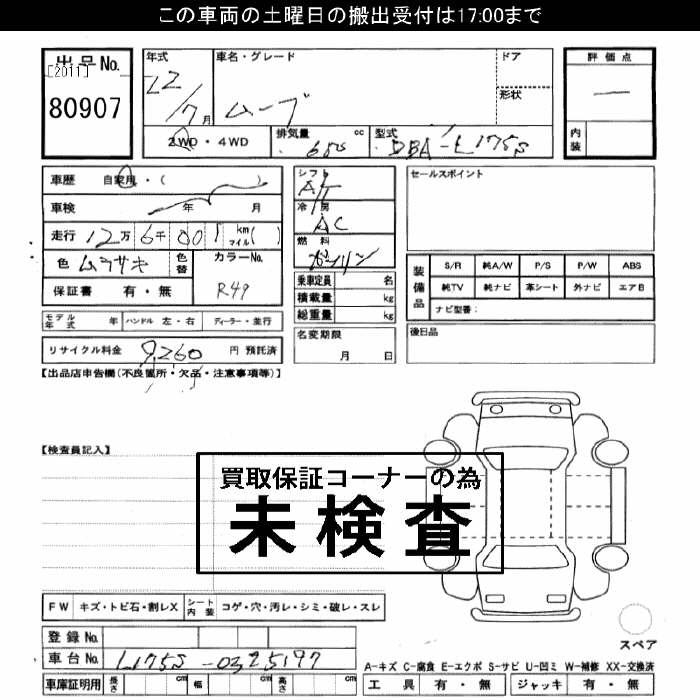 この車両の土曜日の搬出受付は17:00まで
出品No.
[2011]
80907
年式
22/7月
車名・グレード
ムーブ
ドア
形状
評価点
一
内装
2WD・4WD
排気量 cc
660
型式
DBA-L175S
車歴 自家用・( )
車検 年 月
走行 12万6千001 km マイル( )
色 ムラサキ
色替
カラーNo.
R49
保証書 有・無
シフト
AT
冷房
AC
燃料
ガソリン
乗車定員 名
積載量 kg
総重量 kg
セールスポイント
装備品
S/R 純A/W P/S P/W ABS
純TV 純ナビ 革シート 外ナビ エアB
ナビ型番:
モデル年式 年 ハンドル 左・右 ディーラー・並行
名変期限
月 日
後日品
リサイクル料金 9,260 円 預託済
【出品店申告欄(不良箇所・欠品・注意事項等)】
【検査員記入】
買取保証コーナーの為
未検査
FW キズ・トビ石・割レX
シート内装 コゲ・穴・汚レ・シミ・破レ・スレ
登録No.
車台No. L175S-0325197
車庫証明用 長さ cm 幅 cm 高さ cm
スペア
A-キズ C-腐食 E-エクボ S-サビ U-凹ミ W-補修 XX-交換済
工具 有・無 ジャッキ 有・無